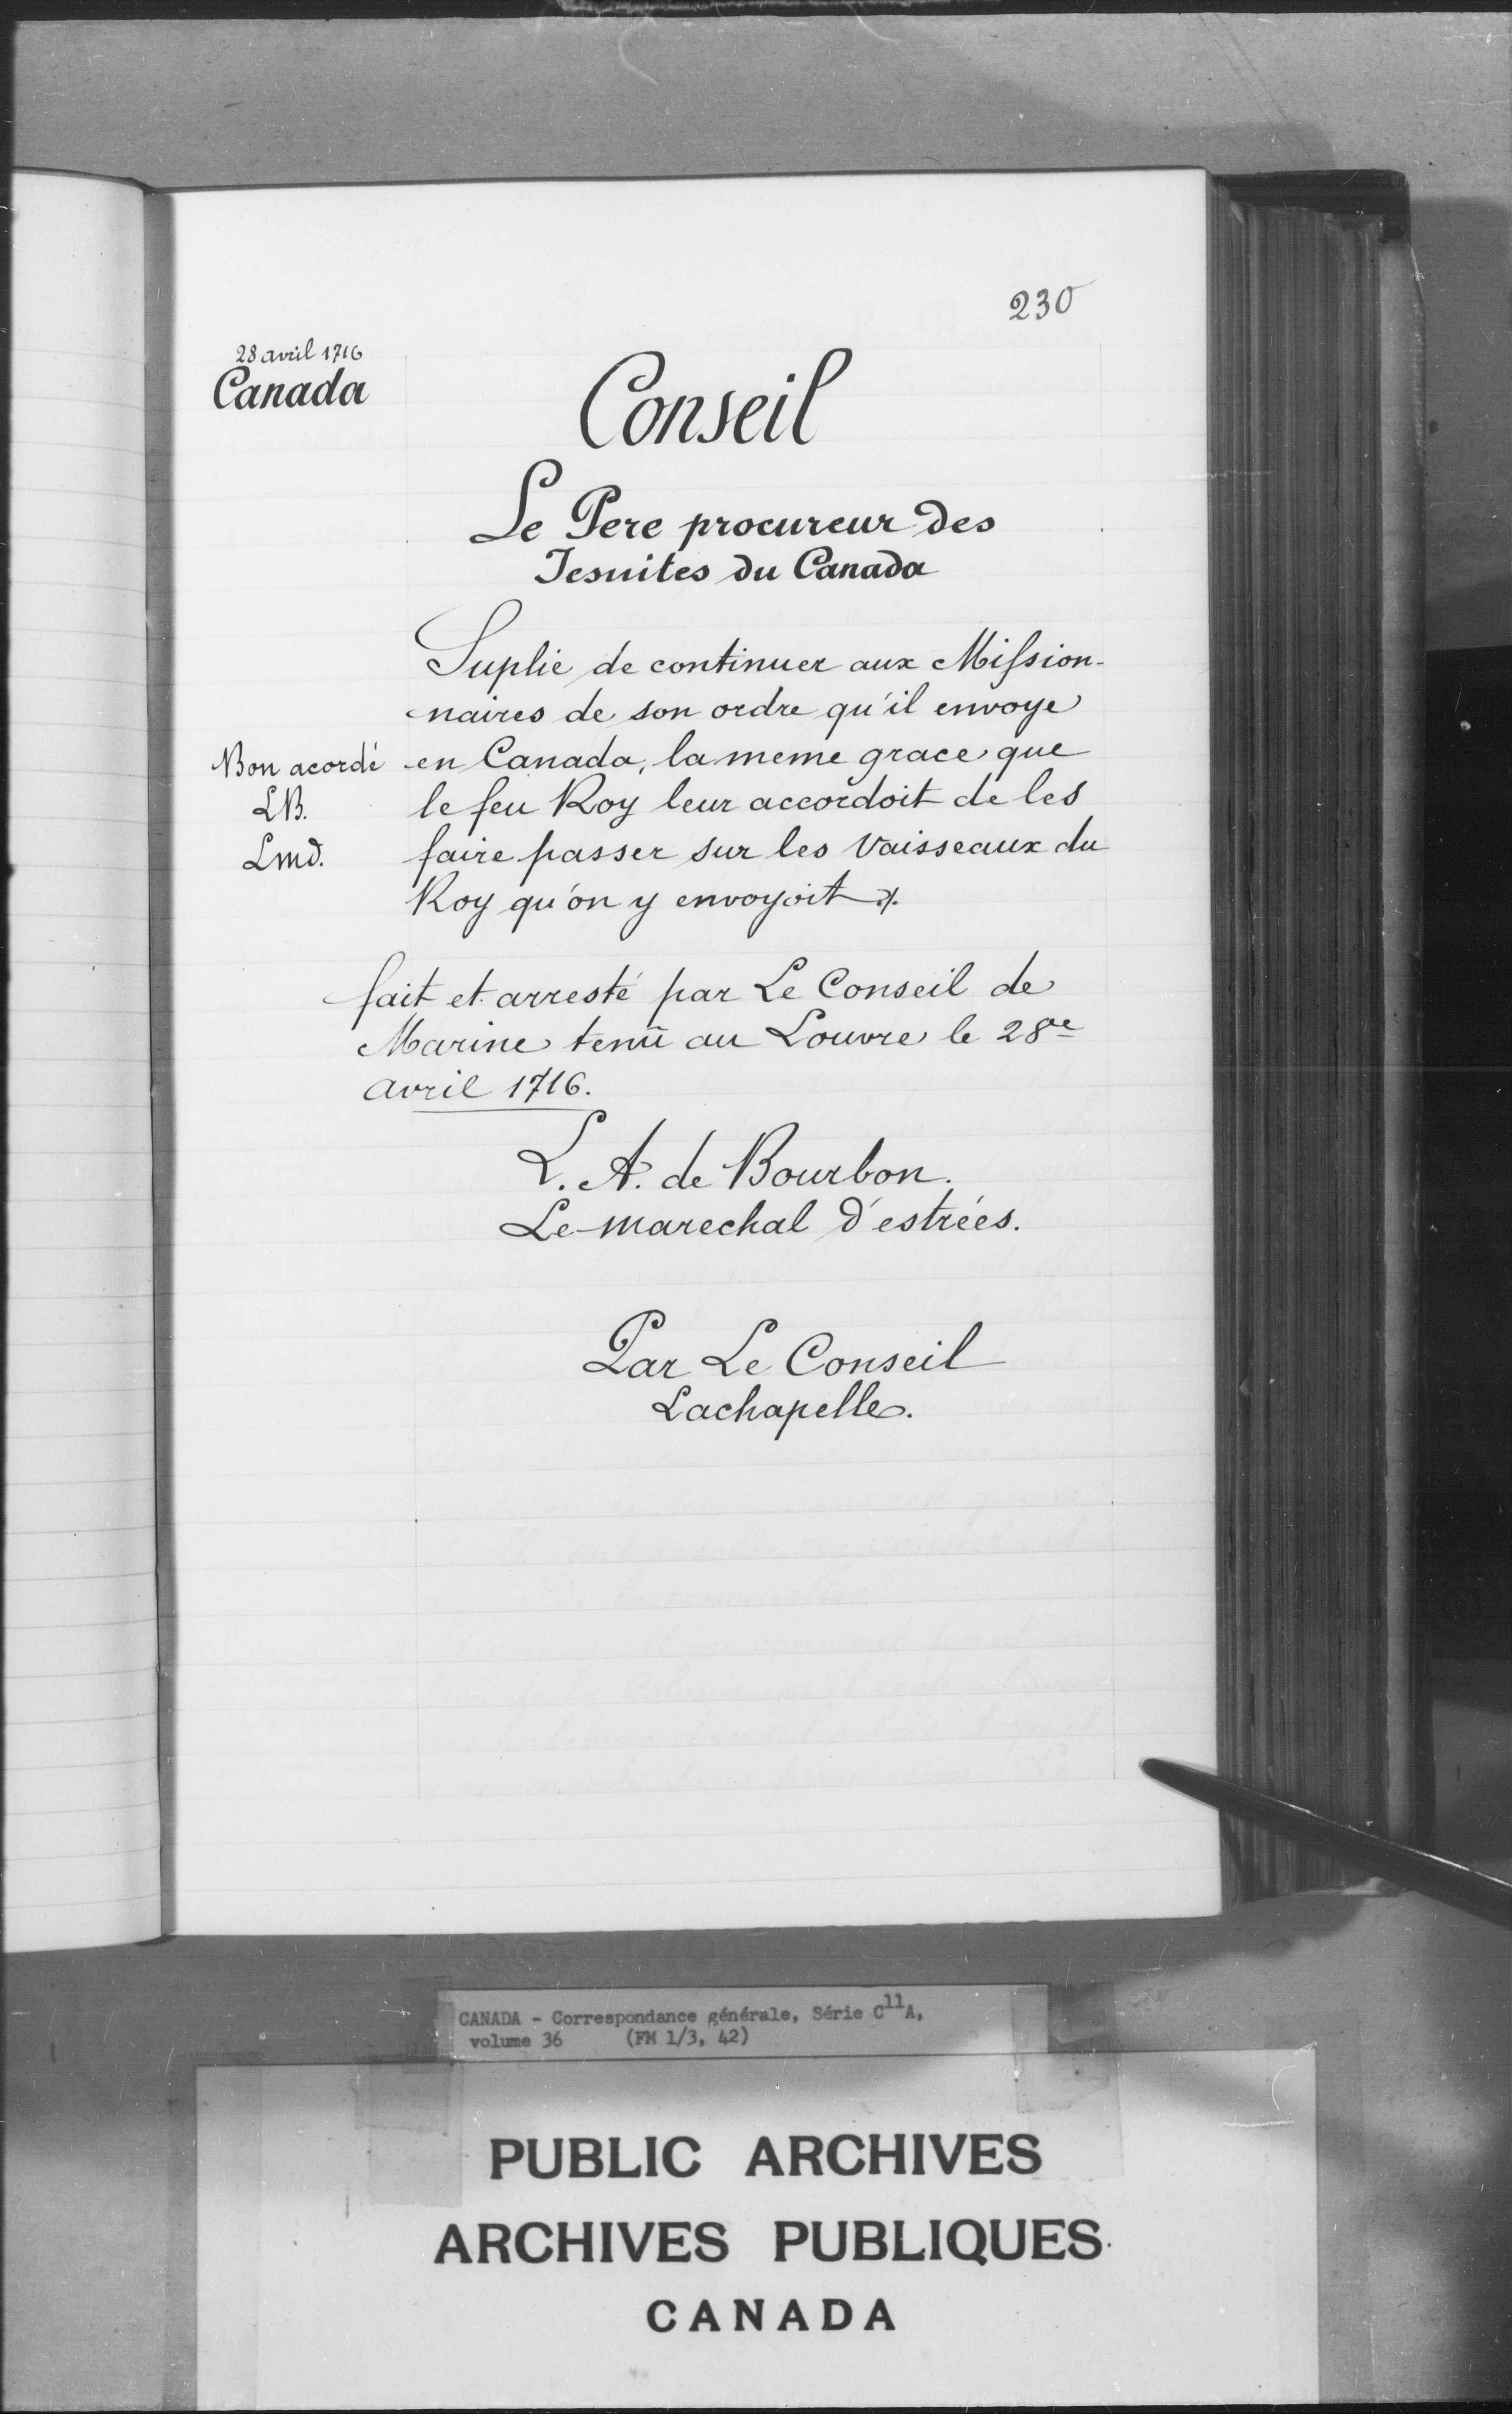 230
28 avril 1716
Canada
Conseil
Le Pere procureur des
Jesuites du Canada
Suplie de continuer aux Mission-
naires de son ordre qu'il envoye
Bon acordé
en Canada, la meme grace que
LB.
le feu Roy leur accordoit de les
Lmd.
faire passer sur les Vaisseaux du
Roy qu'on y envoyoit ⁒
fait et arresté par Le Conseil de
Marine tenû au Louvre le 28e
avril 1716.
L. A. de Bourbon.
Le marechal d'estrées.
Par Le Conseil
Lachapelle.
CANADA - Correspondance générale, Série C11A,
volume 36 (FM 1/3, 42)
PUBLIC ARCHIVES
ARCHIVES PUBLIQUES
CANADA